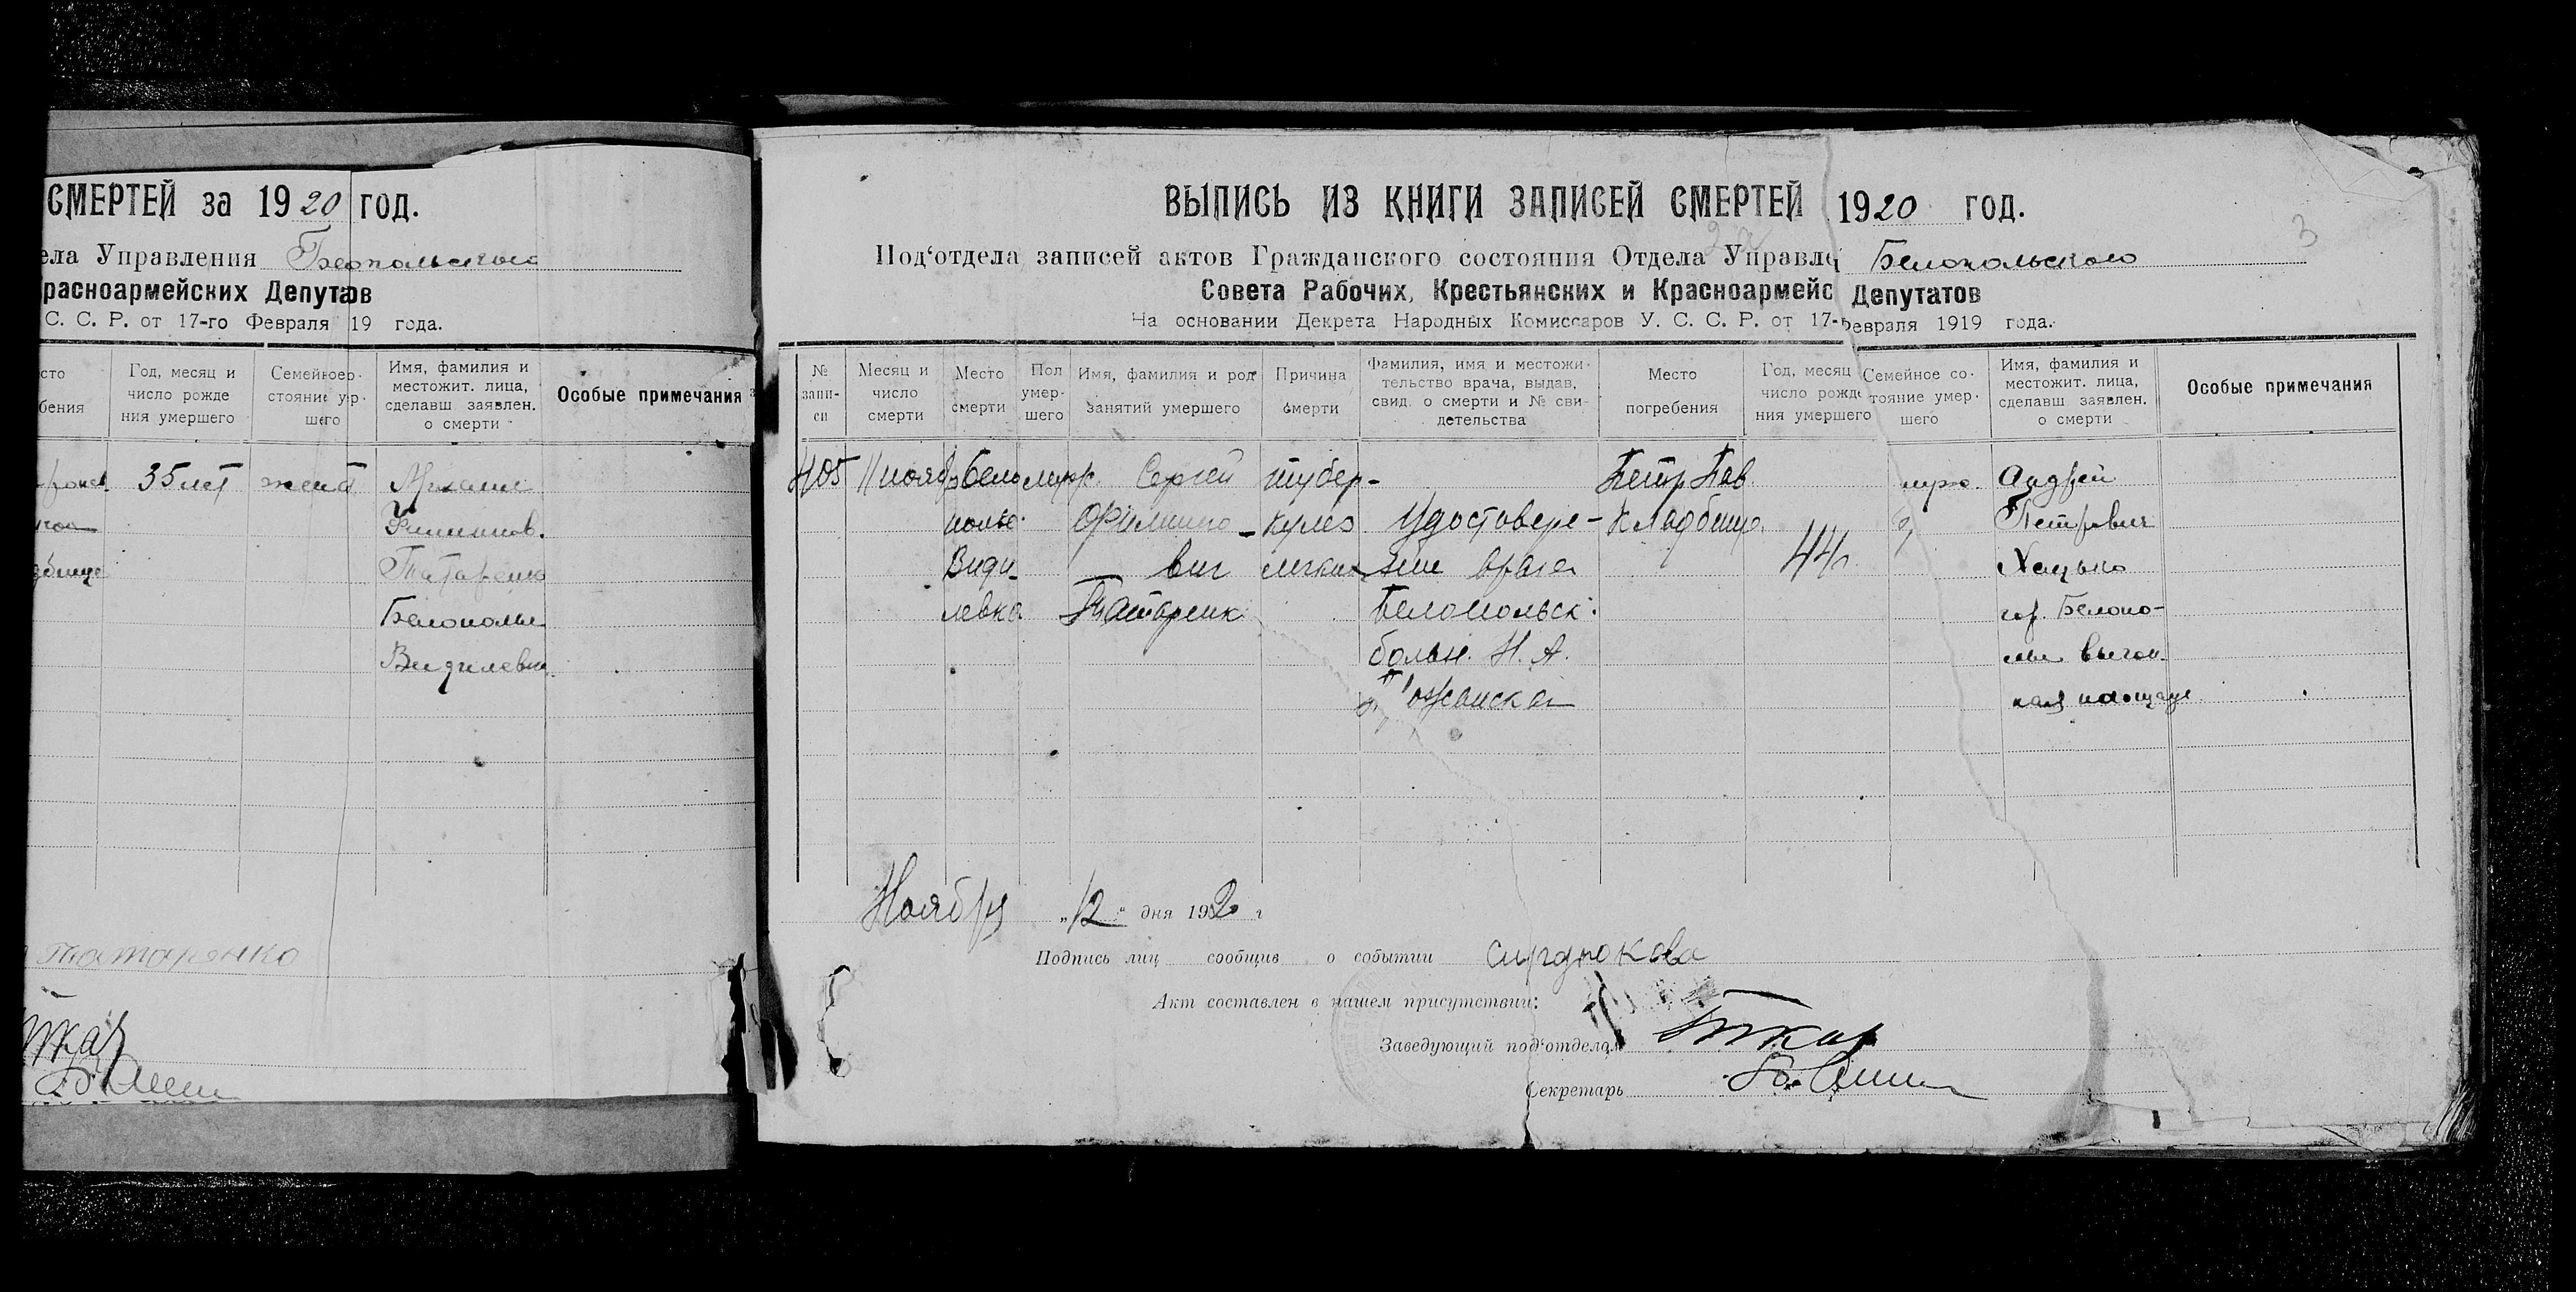 СМЕРТЕЙ за 1920 год.
ела Управления
расноармейских Депутатов
С. С. Р. от 17-го Февраля 19 года.
сто
бения
Год, месяц и
число рожде
ния умершего
Семейное
стояние
шего
Имя, фамилия и
местожит. лица,
сделавш заявлен.
о смерти
Особые примечания
35 лет женат
бище
Татаренко
Белополье
Видилевка
Татаренко
Ткач
ВЫПИСЬ ИЗ КНИГИ ЗАПИСЕЙ СМЕРТЕЙ 1920 год.
3
Под‘отдела записей актов Гражданского состояния Отдела Управле Белопольского
Совета Рабочих, Крестьянских и Красноармейс Депутатов
На основании Декрета Народных Комиссаров У. С. С. Р. от 17- Февраля 1919 года.
№
запи-
си
Месяц и
число
смерти
Место
смерти
Пол
умер-
шего
Имя, фамилия и род
занятий умершего
Причина
смерти
Фамилия, имя и местожи-
тельство врача, выдав,
свид. о смерти и № сви-
детельства
Место
погребения
Год, месяц
число рожде
ния умершего
Семейное со-
тояние умер-
шего
Имя, фамилия и
местожит. лица,
сделавш заявлен.
о смерти
Особые примечания
405 11 нояб Бело муж. Сергей тубер- Петр Пав. Андрей
полье кулез Удостовере- кладбище Петрович
Види- вич легких ние врача 44 г. Хацько
левка Татаренк Белопольск. гор. Белопо-
больн. Н. А. лье выгон-
ная площадь
Ноября „12“ дня 1920 г
Подпись лиц сообщив о событии
Акт составлен в нашем присутствии:
Заведующий под‘отделом Ткач
Секретарь